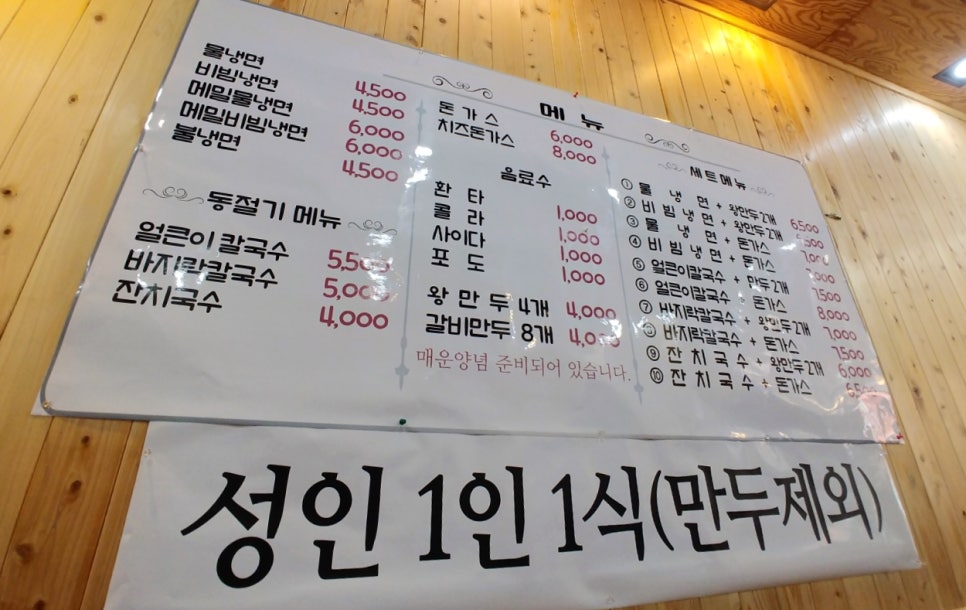 메 뉴
물냉면 4,500
비빔냉면 4,500
메밀물냉면 6,000
메밀비빔냉면 6,000
불냉면 4,500
동절기 메뉴
얼큰이 칼국수 5,500
바지락칼국수 5,000
잔치국수 4,000
돈 가 스 6,000
치즈돈가스 8,000
음료수
환 타 1,000
콜 라 1,000
사이다 1,000
포 도 1,000
왕 만 두 4개 4,000
갈비만두 8개 4,000
매운양념 준비되어 있습니다.
세트메뉴
① 물 냉 면 + 왕만두2개 6,500
② 비 빔 냉 면 + 왕만두2개 6,500
③ 물 냉 면 + 돈가스 7,000
④ 비 빔 냉 면 + 돈가스 7,000
⑤ 얼큰이칼국수 + 만두2개 7,500
⑥ 얼큰이칼국수 + 돈가스 8,000
⑦ 바지락칼국수 + 왕만두2개 7,000
⑧ 바지락칼국수 + 돈가스 7,500
⑨ 잔 치 국 수 + 왕만두2개 6,000
⑩ 잔 치 국 수 + 돈가스
성인 1인 1식(만두제외)